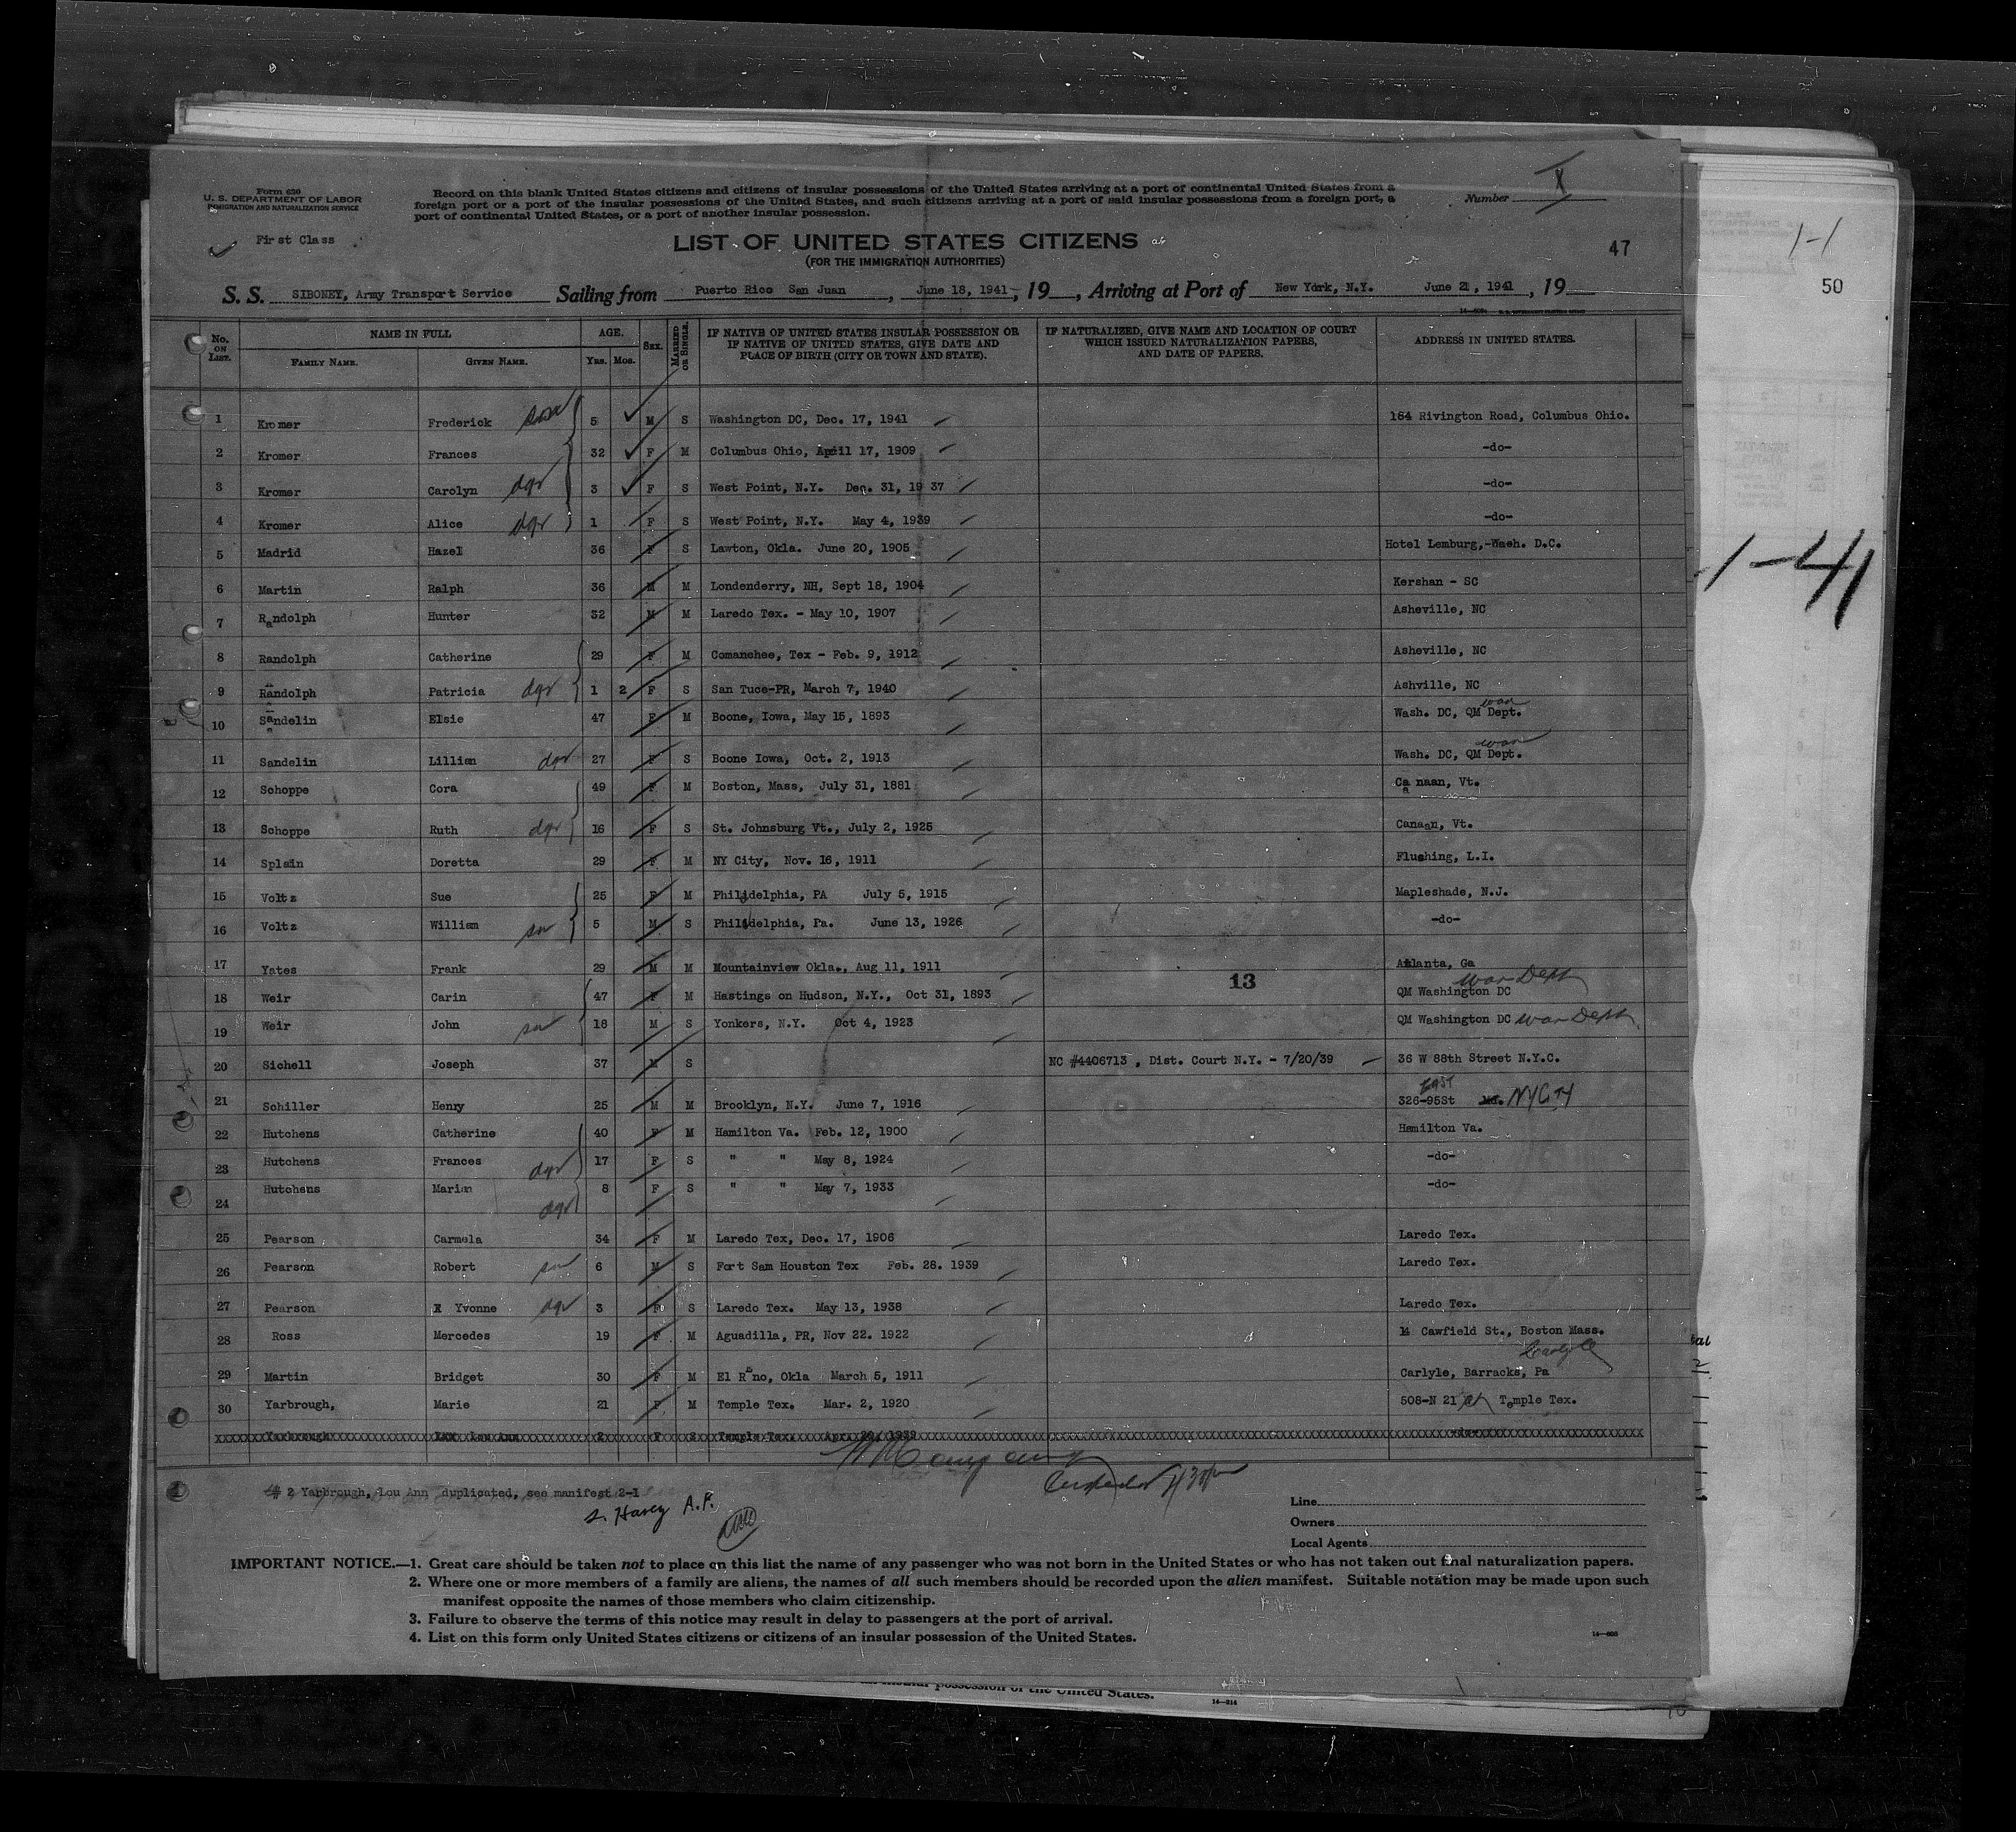 Form 630
U. S. DEPARTMENT OF LABOR
IMMIGRATION AND NATURALIZATION SERVICE
Record on this blank United States citizens and citizens of insular possessions of the United States arriving at a port of continental United States from a
foreign port or a port of the insular possessions of the United States, and such citizens arriving at a port of said insular possessions from a foreign port, a
port of continental United States, or a port of another insular possession.
Number
First Class
LIST OF UNITED STATES CITIZENS
(FOR THE IMMIGRATION AUTHORITIES)
47
1-1
50
S. S. SIBONEY, Army Transport Service Sailing from Puerto Rico San Juan, June 18, 1941, 19 , Arriving at Port of New York, N.Y. June 21, 1941, 19
No. ON LIST. NAME IN FULL AGE. SEX. MARRIED OR SINGLE. IF NATIVE OF UNITED STATES INSULAR POSSESSION OR IF NATIVE OF UNITED STATES, GIVE DATE AND PLACE OF BIRTH (CITY OR TOWN AND STATE). IF NATURALIZED, GIVE NAME AND LOCATION OF COURT WHICH ISSUED NATURALIZATION PAPERS, AND DATE OF PAPERS. ADDRESS IN UNITED STATES.
FAMILY NAME. GIVEN NAME. Yrs. Mos.
1 Kromer Frederick son 5 M S Washington DC, Dec. 17, 1941 164 Rivington Road, Columbus Ohio.
2 Kromer Frances 32 F M Columbus Ohio, April 17, 1909 -do-
3 Kromer Carolyn dgr 3 F S West Point, N.Y. Dec. 31, 19 37 -do-
4 Kromer Alice dgr 1 F S West Point, N.Y. May 4, 1939 -do-
5 Madrid Hazel 36 F S Lawton, Okla. June 20, 1905 Hotel Lemburg,-Wash. D.C.
6 Martin Ralph 36 M M Londenderry, NH, Sept 18, 1904 Kershan - SC
7 Randolph Hunter 32 M M Laredo Tex. - May 10, 1907 Asheville, NC
8 Randolph Catherine 29 F M Comanchee, Tex - Feb. 9, 1912 Asheville, NC
9 Randolph Patricia dgr 1 2 F S San Tuce-PR, March 7, 1940 Ashville, NC
10 Sandelin Elsie 47 F M Boone, Iowa, May 15, 1893 Wash. DC, QM war Dept.
11 Sandelin Lillian dgr 27 F S Boone Iowa, Oct. 2, 1913 Wash. DC, QM war Dept.
12 Schoppe Cora 49 F M Boston, Mass, July 31, 1881 Ca naan, Vt.
13 Schoppe Ruth dgr 16 F S St. Johnsburg Vt., July 2, 1925 Canaan, Vt.
14 Splain Doretta 29 F M NY City, Nov. 16, 1911 Flushing, L.I.
15 Voltz Sue 25 F M Philidelphia, PA July 5, 1915 Mapleshade, N.J.
16 Voltz William son 5 M S Philidelphia, Pa. June 13, 1926 -do-
17 Yates Frank 29 M M Mountainview Okla., Aug 11, 1911 Atlanta, Ga
18 Weir Carin 47 F M Hastings on Hudson, N.Y., Oct 31, 1893 13 QM Washington DC War Dept
19 Weir John son 18 M S Yonkers, N.Y. Oct 4, 1923 QM Washington DC War Dept.
20 Sichell Joseph 37 M S NC #4406713 , Dist. Court N.Y. - 7/20/39 36 W 88th Street N.Y.C.
21 Schiller Henry 25 M M Brooklyn, N.Y. June 7, 1916 326-EAST 95St NYCity
22 Hutchens Catherine 40 F M Hamilton Va. Feb. 12, 1900 Hamilton Va.
23 Hutchens Frances dgr 17 F S " " May 8, 1924 -do-
24 Hutchens Marian dgr 8 F S " " May 7, 1933 -do-
25 Pearson Carmela 34 F M Laredo Tex, Dec. 17, 1906 Laredo Tex.
26 Pearson Robert son 6 M S Fort Sam Houston Tex Feb. 28. 1939 Laredo Tex.
27 Pearson Yvonne dgr 3 F S Laredo Tex. May 13, 1938 Laredo Tex.
28 Ross Mercedes 19 F M Aguadilla, PR, Nov 22. 1922 14 Cawfield St., Boston Mass.
29 Martin Bridget 30 F M El Reno, Okla March 5, 1911 Carlyle, Barracks, Pa Carlyle
30 Yarbrough, Marie 21 F M Temple Tex. Mar. 2, 1920 508-N 21 st Temple Tex.
Yarbrough Lou Ann 2 F S Temple Tex. Apr. 1939 -do-
1-41
# 2 Yarbrough, Lou Ann duplicated, see manifest 2-1
Line
Owners
Local Agents
IMPORTANT NOTICE.—1. Great care should be taken not to place on this list the name of any passenger who was not born in the United States or who has not taken out final naturalization papers.
2. Where one or more members of a family are aliens, the names of all such members should be recorded upon the alien manifest. Suitable notation may be made upon such
manifest opposite the names of those members who claim citizenship.
3. Failure to observe the terms of this notice may result in delay to passengers at the port of arrival.
4. List on this form only United States citizens or citizens of an insular possession of the United States.
possession of the United States.
14-214